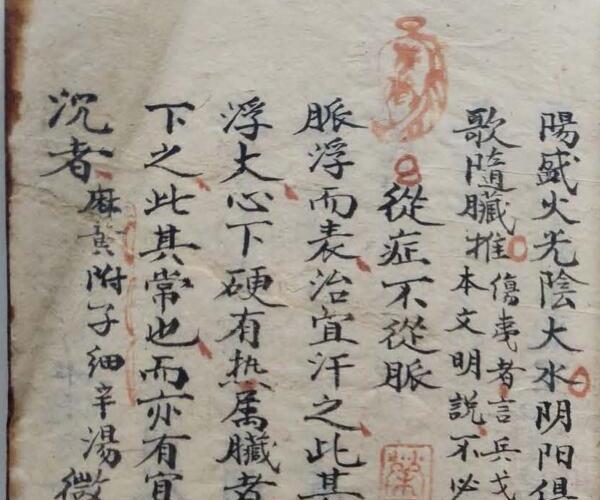 陽盛火光陰大水阴阳得
歌隨臟推
傷夷者言兵戈
本文明說不必
從症不從脈
脈浮而表治宜汗之此其
浮大心下硬有热属臟者
下之此其常也而亦有宜
沉者
麻黄附子细辛湯微